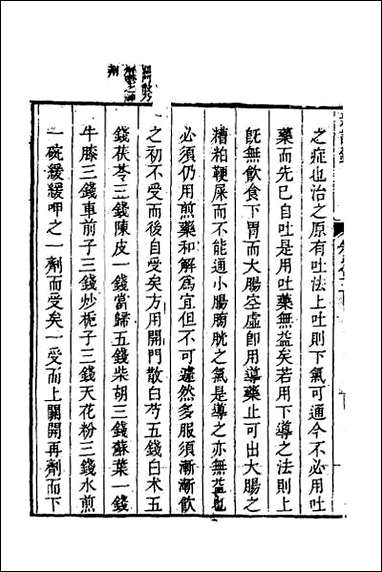 之症也治之原有吐法上吐則下氣可通今不必用吐
藥而先已自吐是用吐藥無益矣若用下導之法則上
旣無飲食下胃而大腸空虛卽用導藥止可出大腸之
糟粕鞕屎而不能通小腸胸胱之氣是導之亦無益也
必須仍用煎藥和解爲宜但不可遽然多服須漸漸飲
之初不受而後自受矣方用開門散白芍五錢白术五
錢茯苓三錢陳皮一錢當歸五錢柴胡三錢蘇葉一錢
牛膝三錢車前子三錢炒梔子三錢天花粉三錢水煎
一碗緩緩呷之一劑而受矣一受而上關開再劑而下